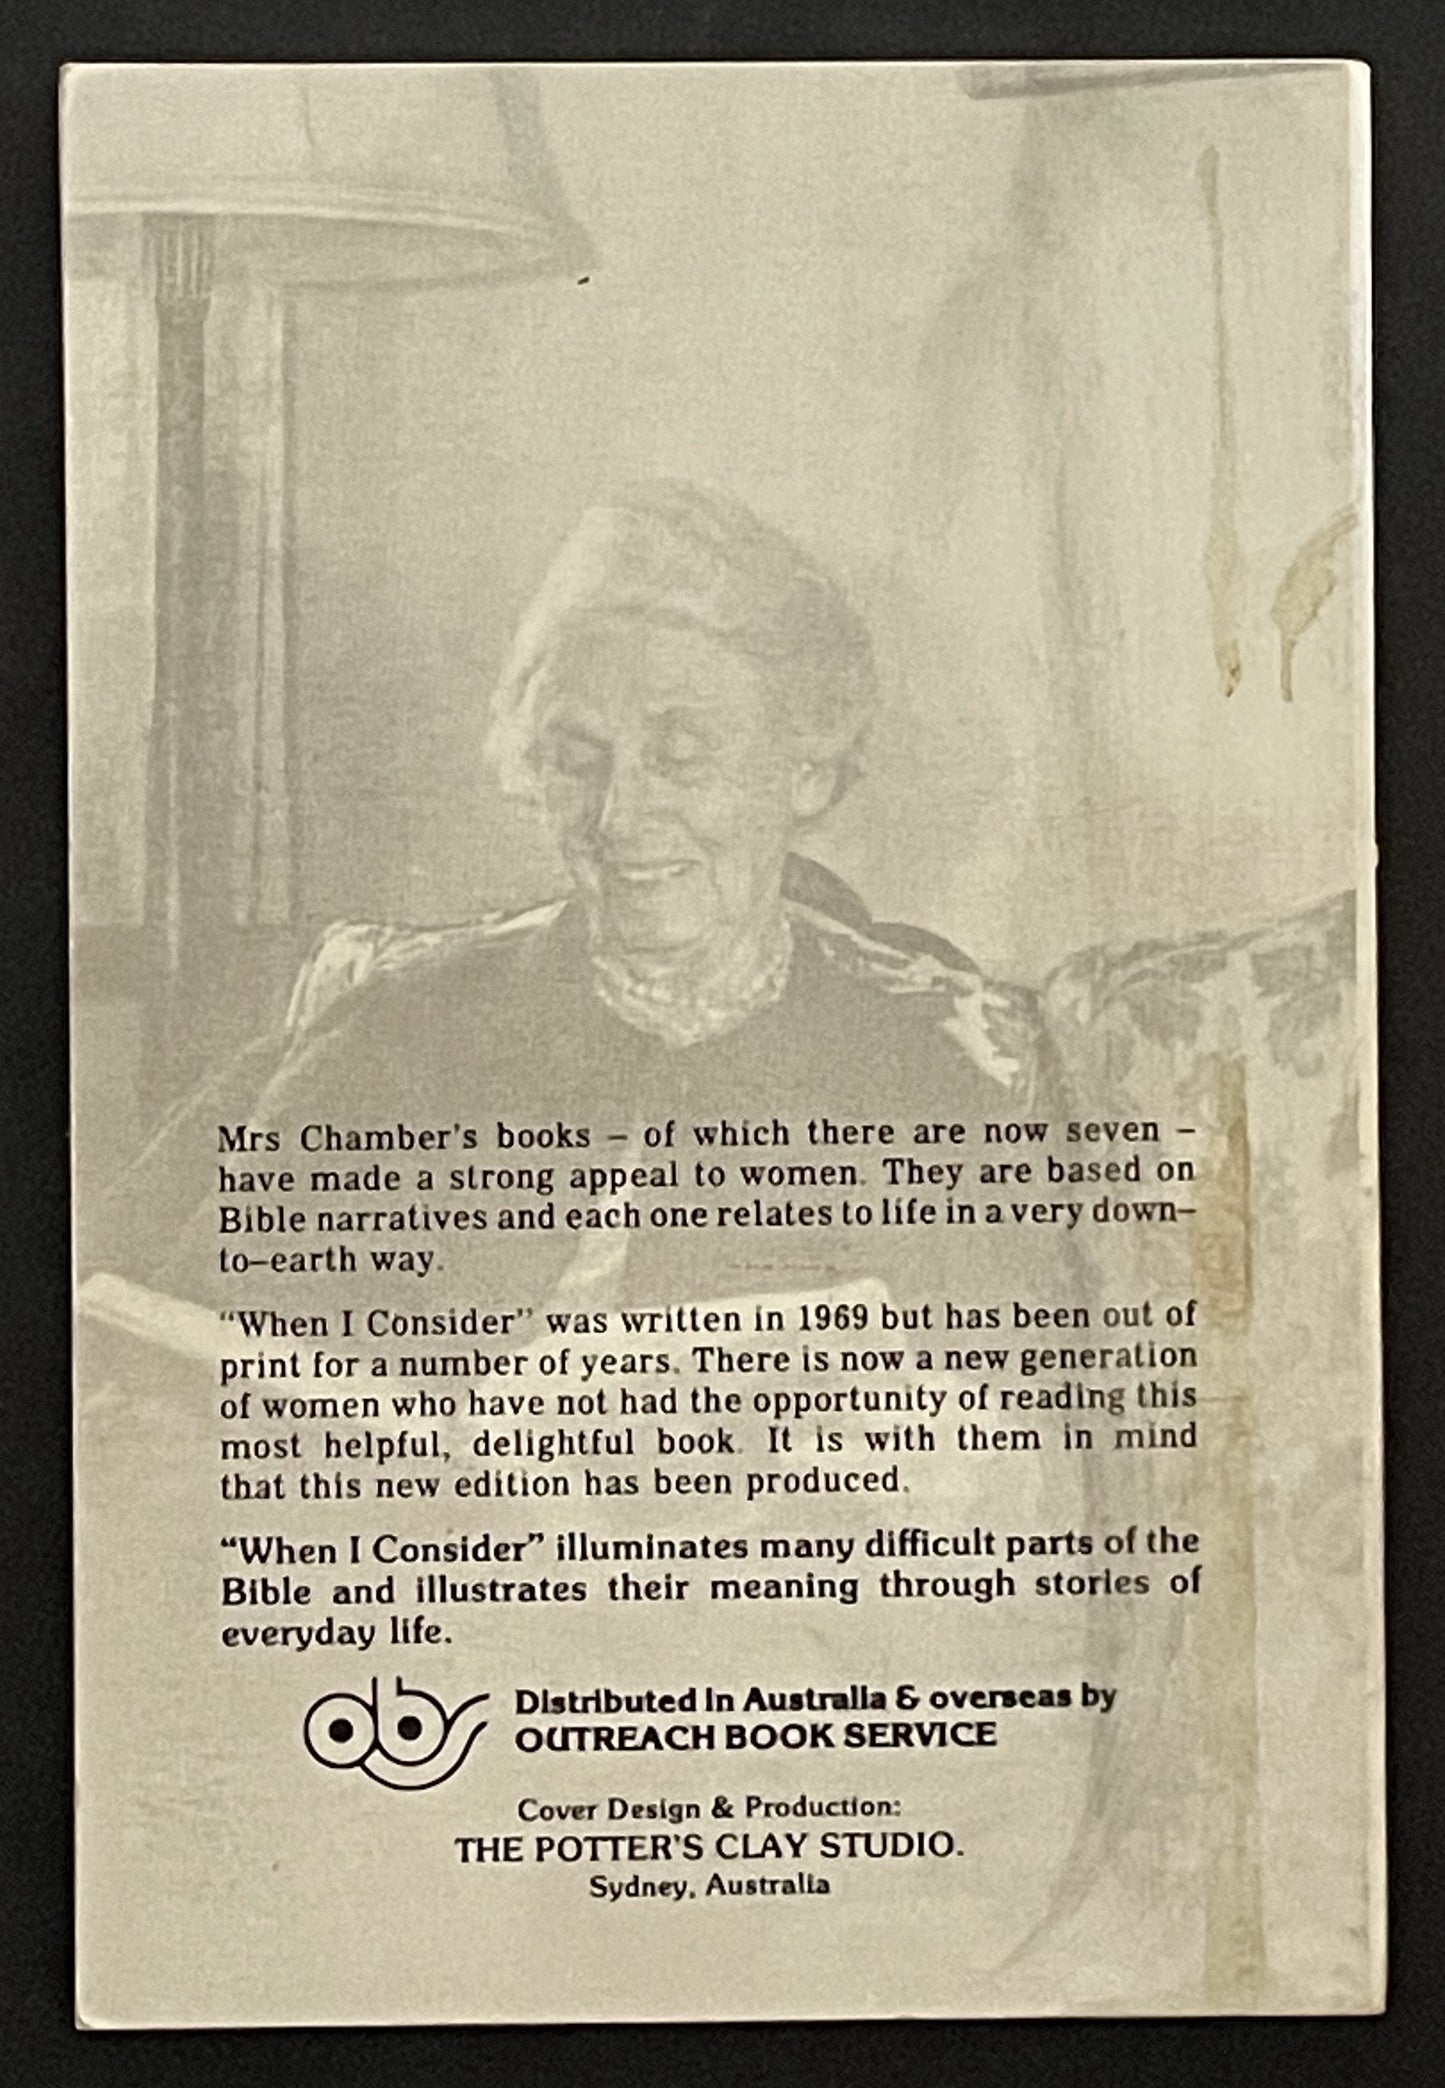 Mrs Chamber's books – of which there are now seven –
have made a strong appeal to women. They are based on
Bible narratives and each one relates to life in a very down–
to–earth way.
"When I Consider" was written in 1969 but has been out of
print for a number of years. There is now a new generation
of women who have not had the opportunity of reading this
most helpful, delightful book. It is with them in mind
that this new edition has been produced.
"When I Consider" illuminates many difficult parts of the
Bible and illustrates their meaning through stories of
everyday life.
obs
Distributed in Australia & overseas by
OUTREACH BOOK SERVICE
Cover Design & Production:
THE POTTER'S CLAY STUDIO.
Sydney, Australia